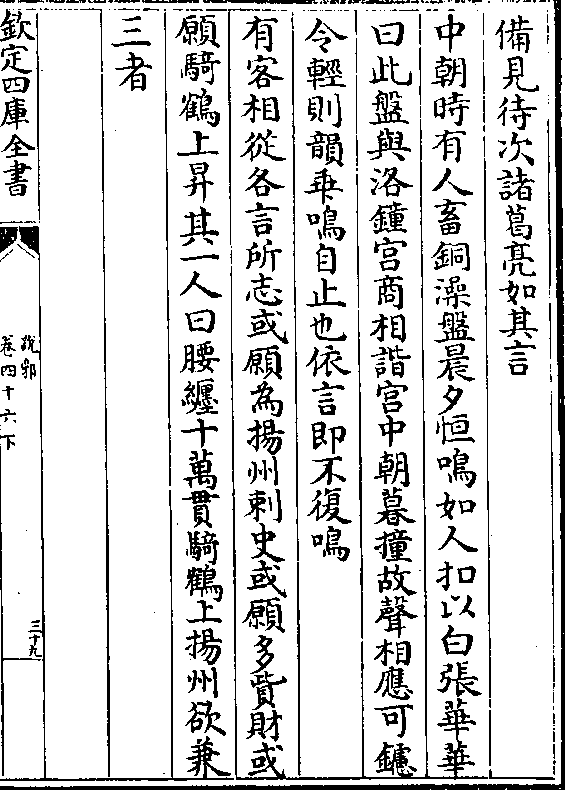 備見待次諸葛亮如其言
中朝時有人畜銅澡盤晨夕恒鳴如人扣以白張華華
曰此盤與洛鐘宫商相諧宫中朝暮撞故聲相應可鑢
令輕則韻乖鳴自止也依言即不復鳴
有客相從各言所志或願為揚州刺史或願多貲財或
願騎鶴上昇其一人曰腰纏十萬貫騎鶴上揚州欲兼
三者
欽定四庫全書
說郛
卷四十六下
三十九